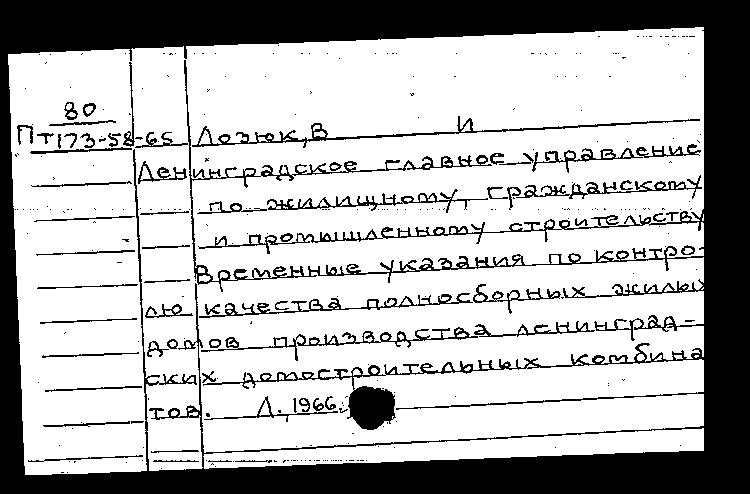 80
ПТ173-58-65 Лозюк, В И
Ленинградское главное управление
по жилищному, гражданскому
и промышленному строительству
Временные указания по контро-
лю качества полносборных жилых
домов производства ленинград-
ских домостроительных комбина
тов. Л., 1966.